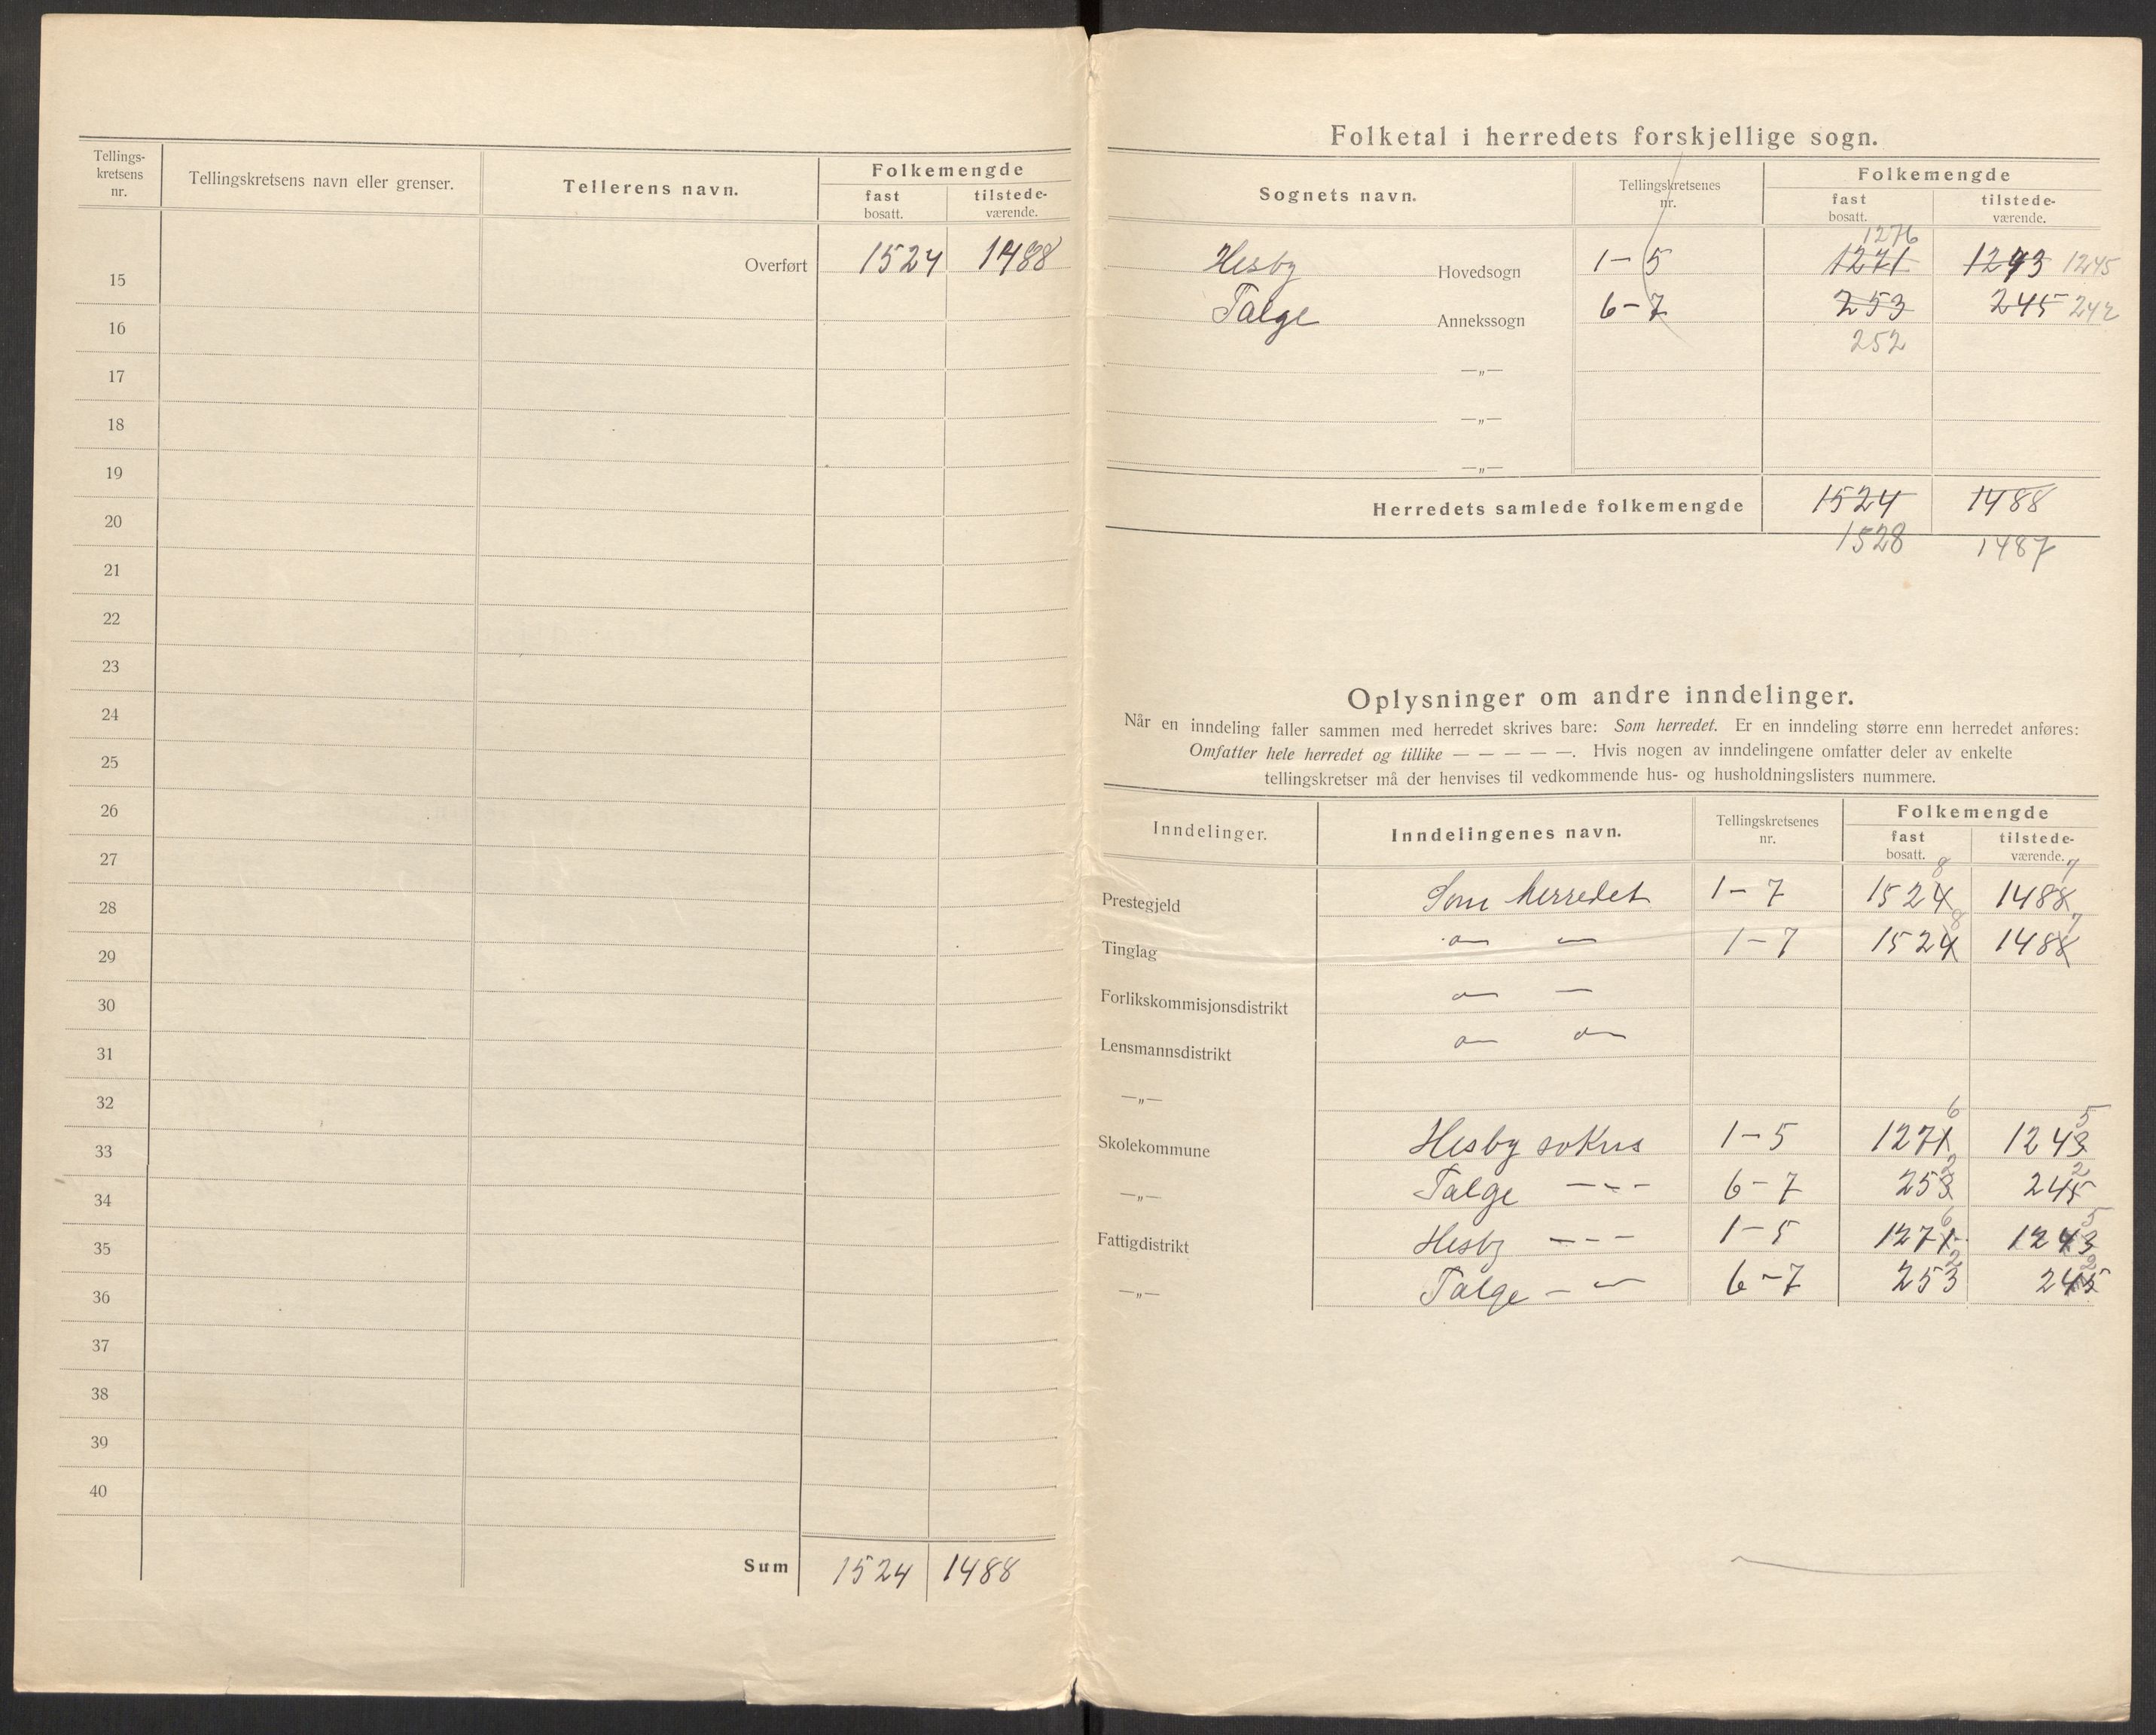 Tellings-
kretsens
nr.
Tellingskretsens navn eller grenser.
Tellerens navn.
Folkemengde
fast
bosatt.
tilstede-
værende.
Overført 1524 1488
15
16
17
18
19
20
21
22
23
24
25
26
27
28
29
30
31
32
33
34
35
36
37
38
39
40
Sum 1524 1488
Folketal i herredets forskjellige sogn.
Sognets navn.
Tellingskretsenes
nr.
Folkemengde
fast
bosatt.
tilstede-
værende.
1276
Hesby Hovedsogn 1-5 1271 1243 1245
Talge Annekssogn 6-7 253 245 242
252
—„—
—„—
—„—
Herredets samlede folkemengde 1524 1488
1528 1487
Oplysninger om andre inndelinger.
Når en inndeling faller sammen med herredet skrives bare: Som herredet. Er en inndeling større enn herredet anføres:
Omfatter hele herredet og tillike — — — — —. Hvis nogen av inndelingene omfatter deler av enkelte
tellingskretser må der henvises til vedkommende hus- og husholdningslisters nummere.
Inndelinger.
Inndelingenes navn.
Tellingskretsenes
nr.
Folkemengde
fast
bosatt.
tilstede-
værende.
8 7
Prestegjeld Som herredet 1-7 1524 1488
8 7
Tinglag 1-7 1524 1488
Forlikskommisjonsdistrikt
Lensmannsdistrikt
—„—
6 5
Skolekommune Hesby sokns 1-5 1271 1243
2 2
—„— Talge --- 6-7 253 245
6 5
Fattigdistrikt Hesby --- 1-5 1271 1243
2 2
—„— Talge - - 6-7 253 245